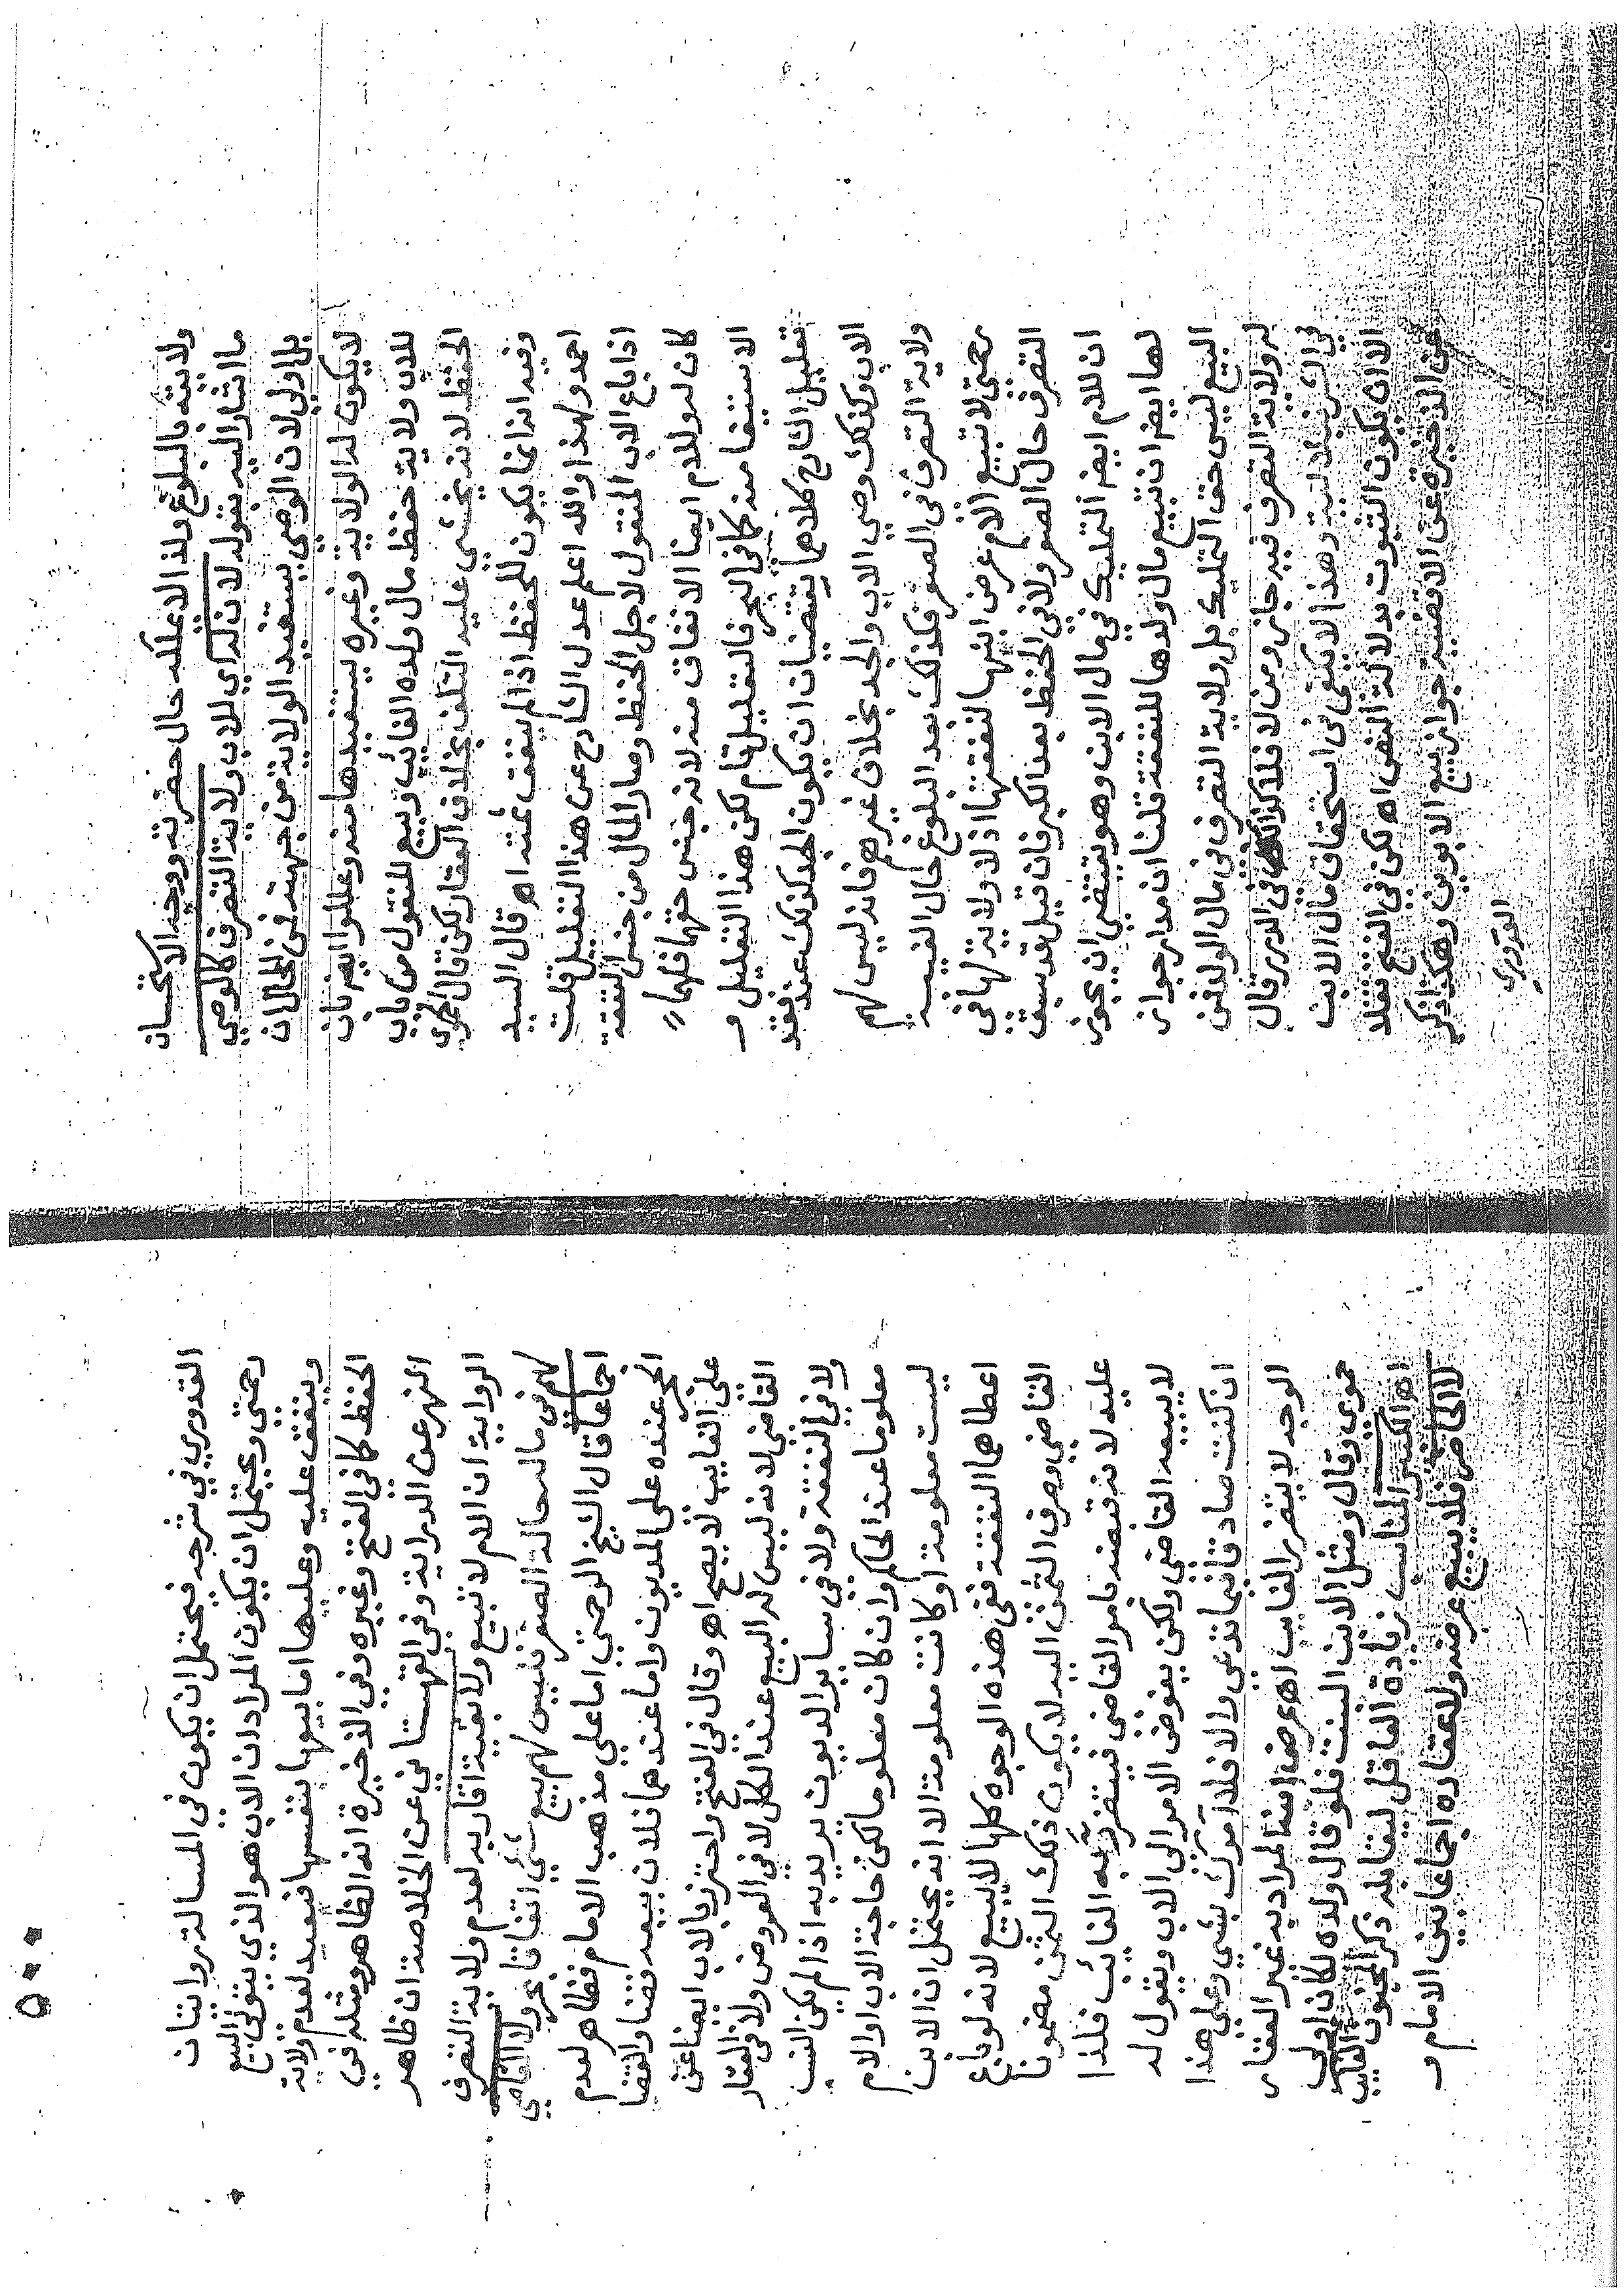 ولايته بالبلوغ ولذا لا يملكه حال حضرته ووجه الاستحسان
ما اشار اليه بقوله لان للاب ولاية التصرف كالوصي
بل اولى لان الوصي يستفيد الولاية من جهته فمن المحال ان
لا يكون له الولاية وغيره يستفيدها منه وعللوا ايضا بان
للاب ولاية حفظ مال ولده الغائب وبيع المنقول من باب
الحفظ لانه يخشى عليه التلف بخلاف العقار لكن قال
وفيه انه انما يكون للحفظ اذا لم ينفق ثمنه اه قال السيد
احمد ولهذا والله اعلم عدل الشارح عن هذا التعليل قلت
اذا باع الاب المنقول لاجل الحفظ وصار المال من جنس النفقة
كان له وللام ايضا الانفاق منه لانه جنس حقهما فلهما
الاستيفا منه كما في البحر فالتعليل تام لكن هذا التعليل و
تعليل الشارح كلاهما يقتضيان ان يكون الجد كذلك عند فقد
الاب وكذلك وصي الاب والجد بخلاف غيرهم فانه ليس لهم
ولاية التصرف في الصغر فكذلك بعد البلوغ حال الغيبة
رحمتي لا تبيع الام عرض ابنها لنفقتها اذ لا ولاية لها في
التصرف حال الصغر ولا في الحفظ بعد الكبر فان قيل قد سبق
ان للام ايضا التمليك في مال الابن وهو يقتضي ان يجوز
لها ايضا ان تبيع مال ولدها للنفقة قلنا ان مدار جواز
البيع ليس حق التمليك بل ولاية التصرف في مال الولد فمن
له ولاية التصرف فيه جاز ومن لا فلا كذا في الدرر قال
في الشرنبلالية وهذا لا يكفي في استحقاق مال الابن
الا ان يكون الثبوت بدلالة النص اه لكن في الفتح نقلا
عن الذخيرة عن الاقضية جواز بيع الابوين وهكذا ذكر
القدوري
القدوري في شرحه فيحتمل ان يكون في المسالة روايتان
رحمتي ويحتمل ان يكون المراد ان الاب هو الذي يتولى البيع
وينفق عليه وعليها اما بيعها بنفسها فبعيد لعدم ولاية
الحفظ كما في الفتح وغيره وفي الذخيرة انه الظاهر ومثله في
النهر عن الدراية وفي القهستاني عن الخلاصة ان ظاهر
الرواية ان الام لا تبيع ولا بقية اقاربه لعدم ولاية التصرف
لهم في ماله حالة الصغر فليس لهم بيع شيء اتفاقا بحر ولا القاضي
اجماعا قال الشيخ الرحمتي اما على مذهب الامام فظاهر لعدم
الحجر عنده على المديون واما عندهما فلان بيعه قضا والقضا
على الغايب لا يصح اه وقال في الفتح واحترز بالاب ايضا عن
القاضي لانه ليس له البيع عند الكل لا في العروض ولا في العقار
ولا في النفقة ولا في ساير الديون يريد به اذا لم يكن النسب
معلوما عند الحاكم وان كان معلوما لكن حاجة الاب او الام
ليست معلومة او كانت معلومة الا انه يحتمل ان الابن
اعطاهما النفقة ففي هذه الوجوه كلها لا يبيع لانه لو باع
القاضي وصرف الثمن اليه لا يكون ذلك الثمن مضمونا
عليه لانه قبضه بامر القاضي فيتضرر به الغائب فلذا
لا يبيعه القاضي ولكن يفوض الامر الى الاب ويقول له
ان كنت صادقا فيما تدعي والا فلا آمرك بشيء وعلى هذا
الوجه لا يتضرر الغايب اه عرض ابنه المراد به غير العقار
حموي وقال ومثل الابن البنت فلو قال ولده لكان اولى
اه الكبير الغايب زيادة العاقل ليقابله ذكر المجنون
لا الحاضر فلا يبيع عرضه ولا عقاره اجماعا بين الامام و